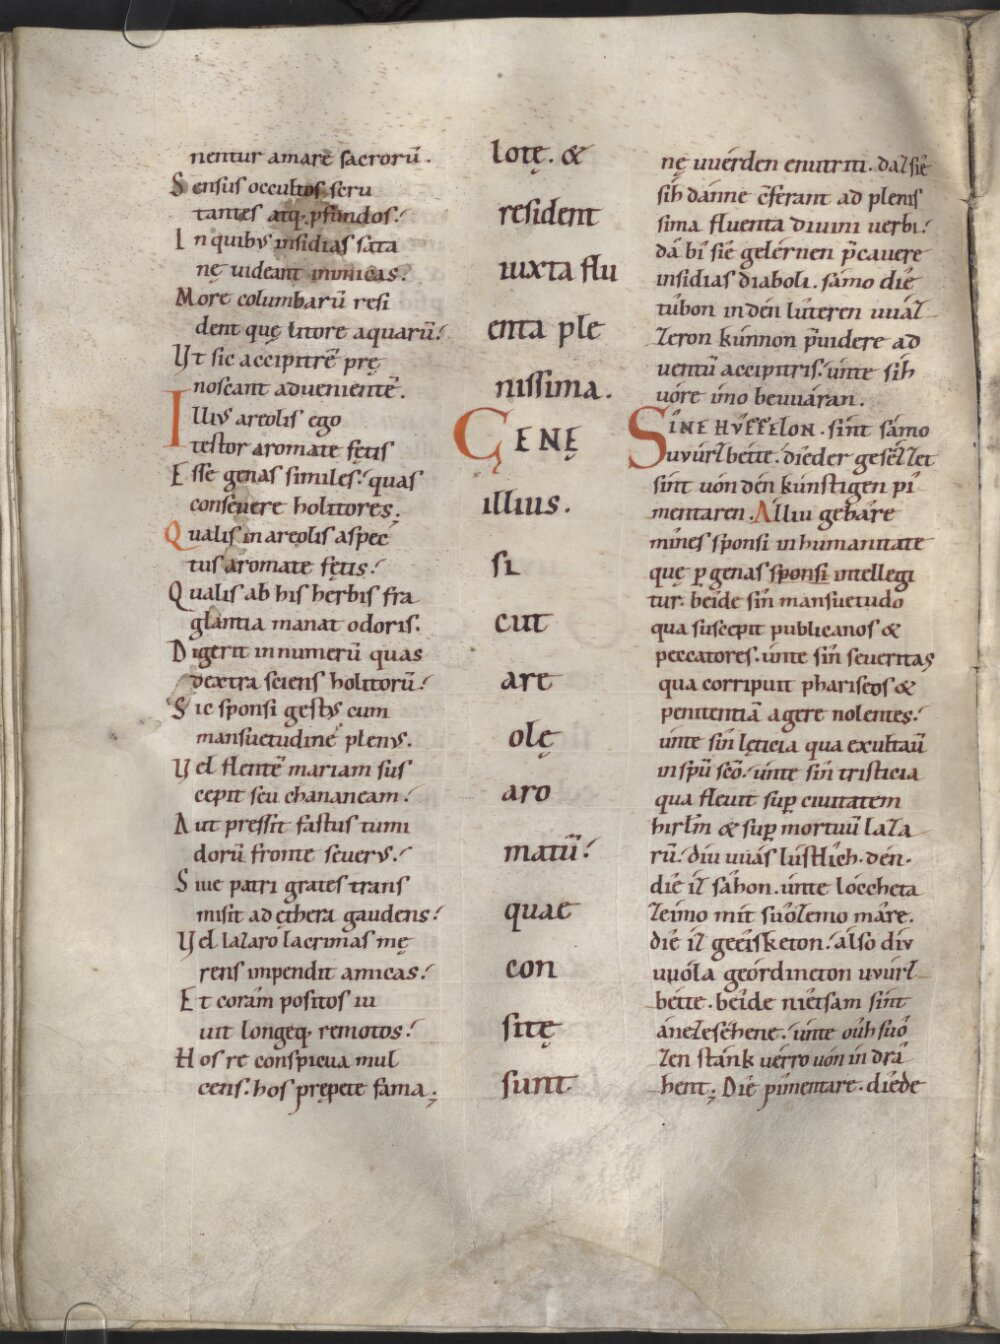 nentur amare sacrorū.
Sensus occultos scru
tantes atq; pfundos.
In quibus insidias sata
nę uideant inimicas.
More columbarū resi
dent quę litore aquarū.
Vt sic accipitrē prę
noscant aduenientē.
Illius areolis ego
testor aromate fętis
Esse genas similes. quas
conseuere holitores.
Qualis in areolis aspec
tus aromate fętis.
Qualis ab his herbis fra
glantia manat odoris.
Digerit in numerū quas
dextra sciens holitorū.
Sic sponsi gestus cum
mansuetudine plenus.
Vel flentē mariam sus
cepit seu chananeam.
Aut pressit fastus tumi
dorū fronte seuerus.
Siue patri grates trans
misit ad ęthera gaudens.
Vel lazaro lacrimas mę
rens impendit amicas.
Et coram positos iu
uit longeq; remotos.
Hos re conspicua mul
cens. hos prępete fama.
lotę. &
resident
iuxta flu
enta ple
nissima.
GENĘ
illius.
si
cut
are
olę
aro
matū.
quae
con
sitę
sunt.
nę uuérden enutriti. daz siê
sih dánne c̄ferant ad plenis
sima fluenta diuini uerbi.
dâ bî siê gelérnen p̄cauere
insidias diaboli. sámo diê
tûbon in dén lûteren uuáz
zeron kúnnon p̄uidere ad
uentū accipitris. únte sih
uóre imo beuuáran.
SÎNE HVFFELON. sínt sámo
uvúrzbétte. diêder gesézzet
sínt uón dén kúnstigen pî
mentaren. Álliu gebâre
mînes sponsi in humanitate
quę p genas sponsi intellegi
tur. beîde sîn mansuetudo
qua suscepit publicanos &
peccatores. únte sîn seueritas
qua corripuit phariseos &
penitentiā agere nolentes.
únte sîn lęticia qua exultauit
in spū scō. únte sîn tristicia
qua fleuit sup ciuitatem
hirłm & sup mortuū laza
rū. diu uuás lústlich. dén.
diê iz sâhon. únte lóccheta
zeîmo mit suôzemo mâre.
diê iz geeîsketon. álso diu
uuóla geórdineton uvúrz
bétte. beîde niêtsam sínt
ánezeséhene. únte oûh suô
zen stánk uérro uón in drâ
hent. Diê pîmentare. diêde